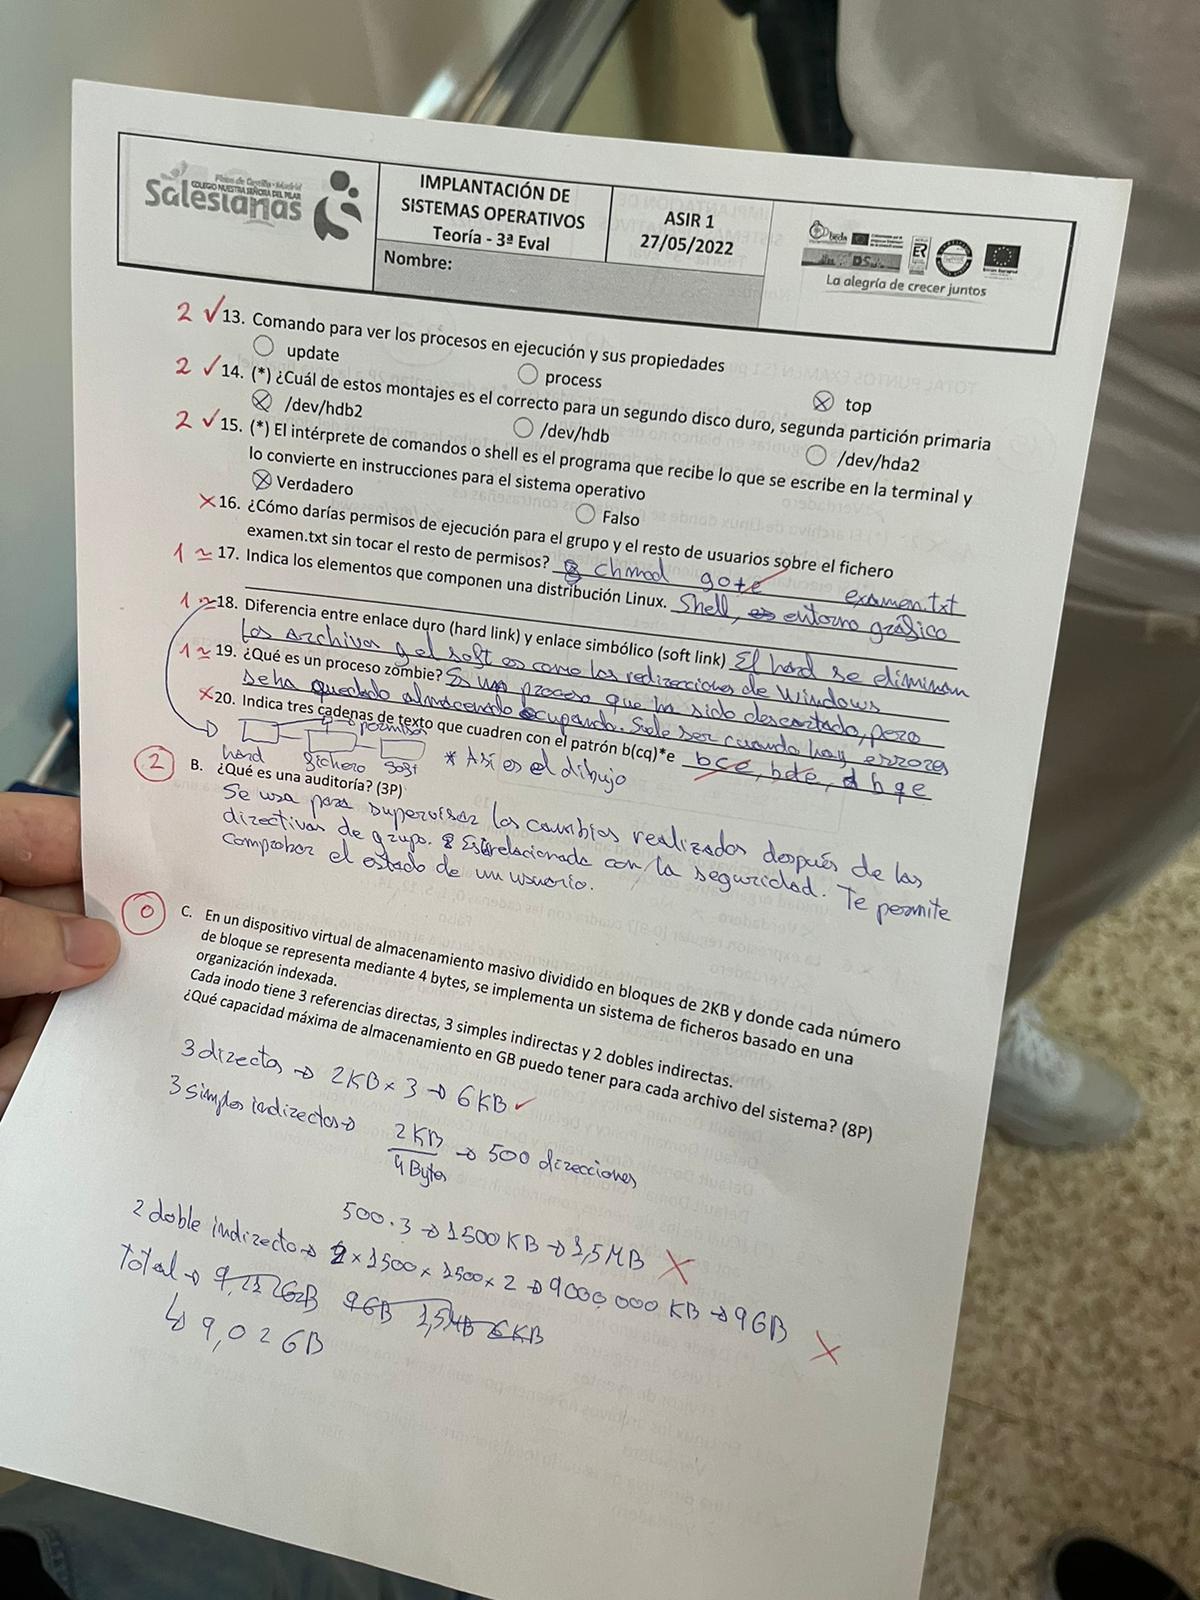 Plaza de Castilla - Madrid
COLEGIO NUESTRA SEÑORA DEL PILAR
Salesianas
IMPLANTACIÓN DE
SISTEMAS OPERATIVOS
Teoría - 3ª Eval
ASIR 1
27/05/2022
Nombre:
La alegría de crecer juntos
2 ✓ 13. Comando para ver los procesos en ejecución y sus propiedades
update process top
2 ✓ 14. (*) ¿Cuál de estos montajes es el correcto para un segundo disco duro, segunda partición primaria
/dev/hdb2 /dev/hdb /dev/hda2
2 ✓ 15. (*) El intérprete de comandos o shell es el programa que recibe lo que se escribe en la terminal y
lo convierte en instrucciones para el sistema operativo
Verdadero Falso
X 16. ¿Cómo darías permisos de ejecución para el grupo y el resto de usuarios sobre el fichero
examen.txt sin tocar el resto de permisos? chmod go+e examen.txt
1 ≈ 17. Indica los elementos que componen una distribución Linux. Shell, entorno gráfico
1 ≈ 18. Diferencia entre enlace duro (hard link) y enlace simbólico (soft link) El hard se eliminan
los archivos y el soft es como las redirecciones de Windows
1 ≈ 19. ¿Qué es un proceso zombie? Es un proceso que ha sido descartado, pero
se ha quedado almacenado ocupando. Suele ser cuando hay errores
X 20. Indica tres cadenas de texto que cuadren con el patrón b(cq)*e bce, bde, bqe
permisos
hard fichero soft * Así es el dibujo
2 B. ¿Qué es una auditoría? (3P)
Se usa para supervisar los cambios realizados después de las
directivas de grupo. Est relacionada con la seguridad. Te permite
comprobar el estado de un usuario.
0 C. En un dispositivo virtual de almacenamiento masivo dividido en bloques de 2KB y donde cada número
de bloque se representa mediante 4 bytes, se implementa un sistema de ficheros basado en una
organización indexada.
Cada inodo tiene 3 referencias directas, 3 simples indirectas y 2 dobles indirectas.
¿Qué capacidad máxima de almacenamiento en GB puedo tener para cada archivo del sistema? (8P)
3 directos → 2KB × 3 → 6KB ✓
3 simples indirectos → 2KB / 4 Bytes → 500 direcciones
500 · 3 → 1500 KB → 1,5 MB X
2 doble indirecto → 2 × 1500 × 1500 × 2 → 9000.000 KB → 9GB X
Total → 9GB 1,5MB 6KB
↳ 9,02 GB